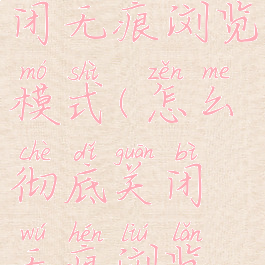 闭无痕浏览
mó shì zěn me
模式(怎么
chè dǐ guān bì
彻底关闭
wú hén liú lǎn
无痕浏览